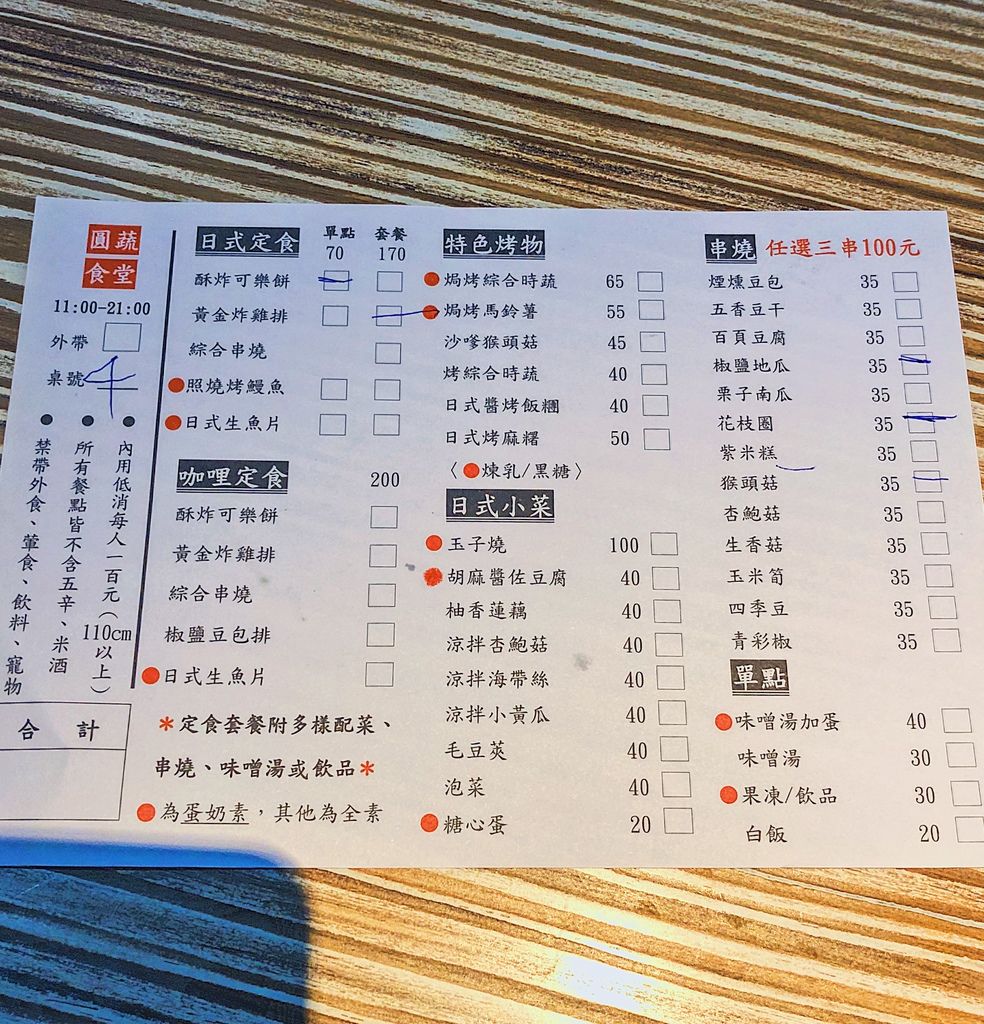 圓蔬
食堂
11:00-21:00
外帶
桌號 4
● 內用低消每人一百元(110cm以上)
● 所有餐點皆不含五辛、米酒
● 禁帶外食、葷食、飲料、寵物
合 計
日式定食 單點 70 套餐 170
酥炸可樂餅
黃金炸雞排
綜合串燒
●照燒烤鰻魚
●日式生魚片
咖哩定食 200
酥炸可樂餅
黃金炸雞排
綜合串燒
椒鹽豆包排
●日式生魚片
*定食套餐附多樣配菜、
串燒、味噌湯或飲品*
●為蛋奶素,其他為全素
特色烤物
●焗烤綜合時蔬 65
●焗烤馬鈴薯 55
沙嗲猴頭菇 45
烤綜合時蔬 40
日式醬烤飯糰 40
日式烤麻糬 50
〈●煉乳/黑糖〉
日式小菜
●玉子燒 100
●胡麻醬佐豆腐 40
柚香蓮藕 40
涼拌杏鮑菇 40
涼拌海帶絲 40
涼拌小黃瓜 40
毛豆莢 40
泡菜 40
●糖心蛋 20
串燒 任選三串100元
煙燻豆包 35
五香豆干 35
百頁豆腐 35
椒鹽地瓜 35
栗子南瓜 35
花枝圈 35
紫米糕 35
猴頭菇 35
杏鮑菇 35
生香菇 35
玉米筍 35
四季豆 35
青彩椒 35
單點
●味噌湯加蛋 40
味噌湯 30
●果凍/飲品 30
白飯 20